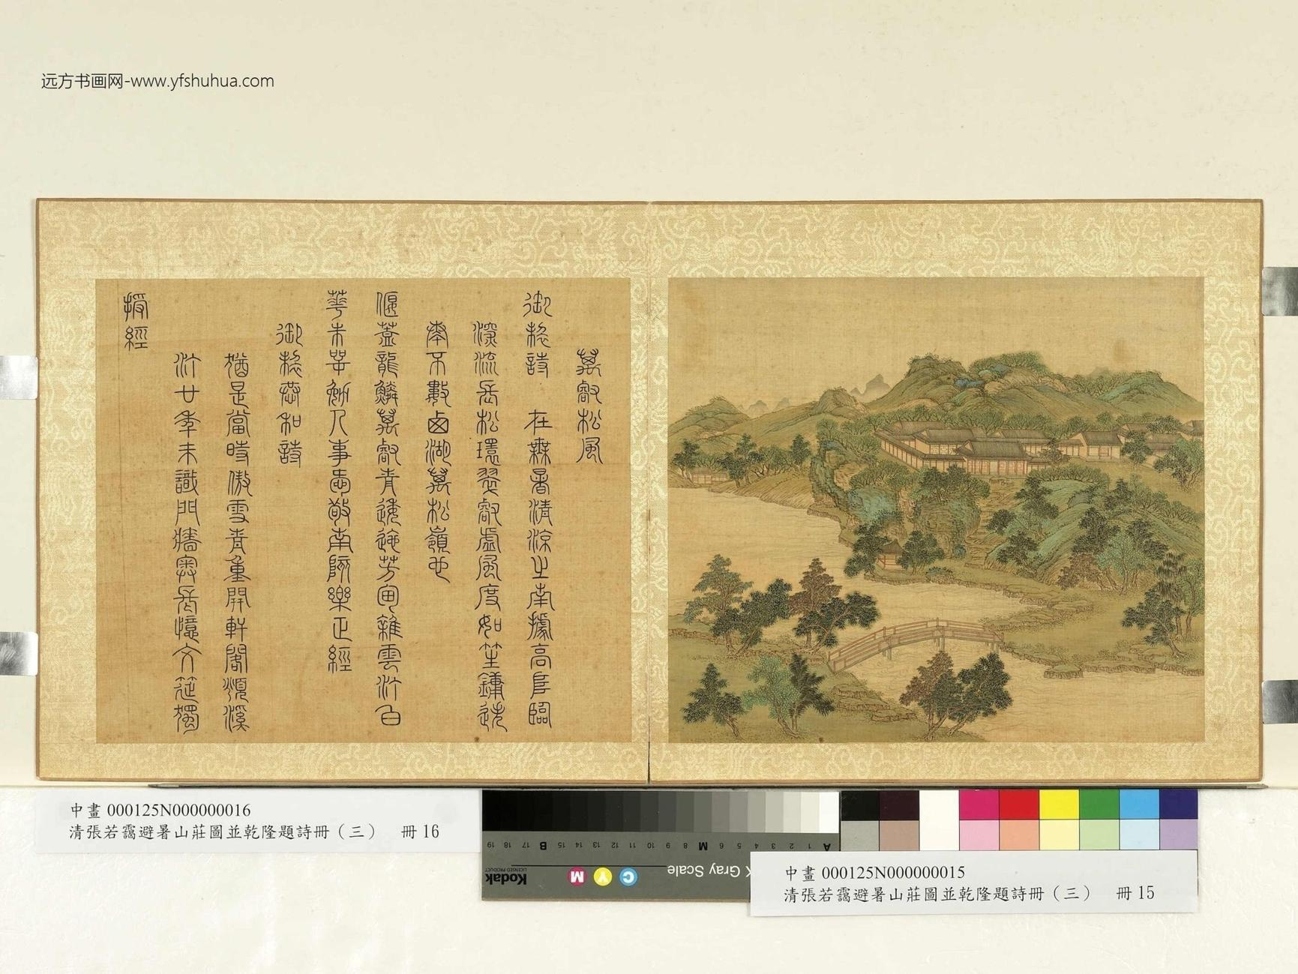 远方书画网-www.yfshuhua.com
萬壑松風
御製詩 在無暑清涼之南據高阜臨
深流長松環翠壑虛風度如笙鏞迭
奏不數西湖萬松嶺也
偃蓋龍鱗萬壑青逶迤芳甸雜雲汀白
華朱萼勉人事愛敬南陔樂正經
御製恭和詩
猶是當時傲雪青重開軒閣頫溪
汀廿年未識門牆奧長憶文筵獨
授經
中畫 000125N000000016
清張若靄避暑山莊圖並乾隆題詩冊（三） 冊 16
中畫 000125N000000015
清張若靄避暑山莊圖並乾隆題詩冊（三） 冊 15
A 1 2 3 4 5 6 M 8 9 10 11 12 13 14 15 B 17 18 19
Gray Scale
C Y M
Kodak
LICENSED PRODUCT